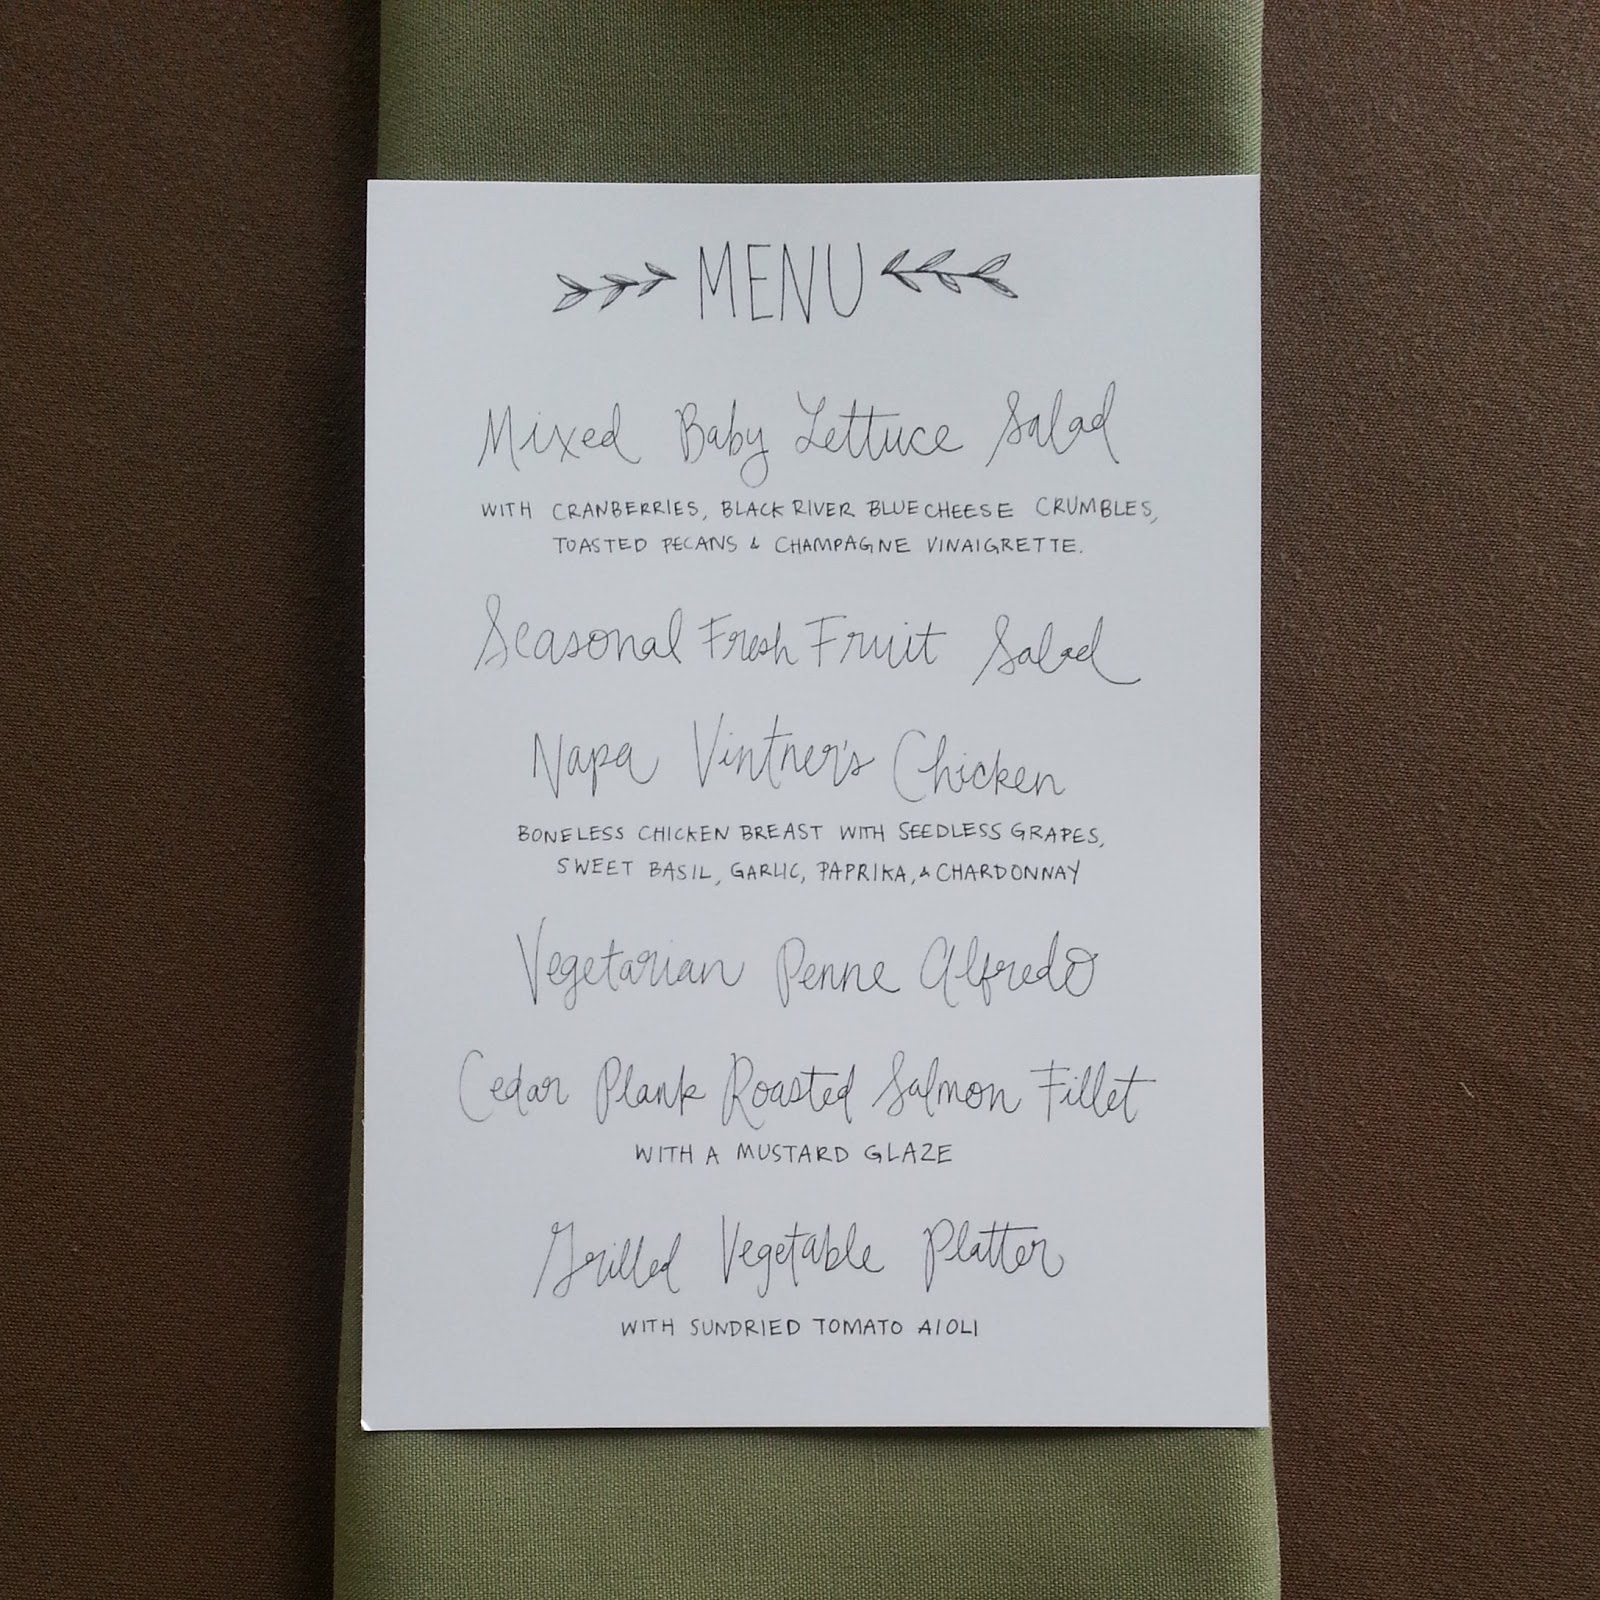 MENU
Mixed Baby Lettuce Salad
WITH CRANBERRIES, BLACK RIVER BLUE CHEESE CRUMBLES,
TOASTED PECANS & CHAMPAGNE VINAIGRETTE.
Seasonal Fresh Fruit Salad
Napa Vintner's Chicken
BONELESS CHICKEN BREAST WITH SEEDLESS GRAPES,
SWEET BASIL, GARLIC, PAPRIKA, & CHARDONNAY
Vegetarian Penne Alfredo
Cedar Plank Roasted Salmon Fillet
WITH A MUSTARD GLAZE
Grilled Vegetable Platter
WITH SUNDRIED TOMATO AIOLI